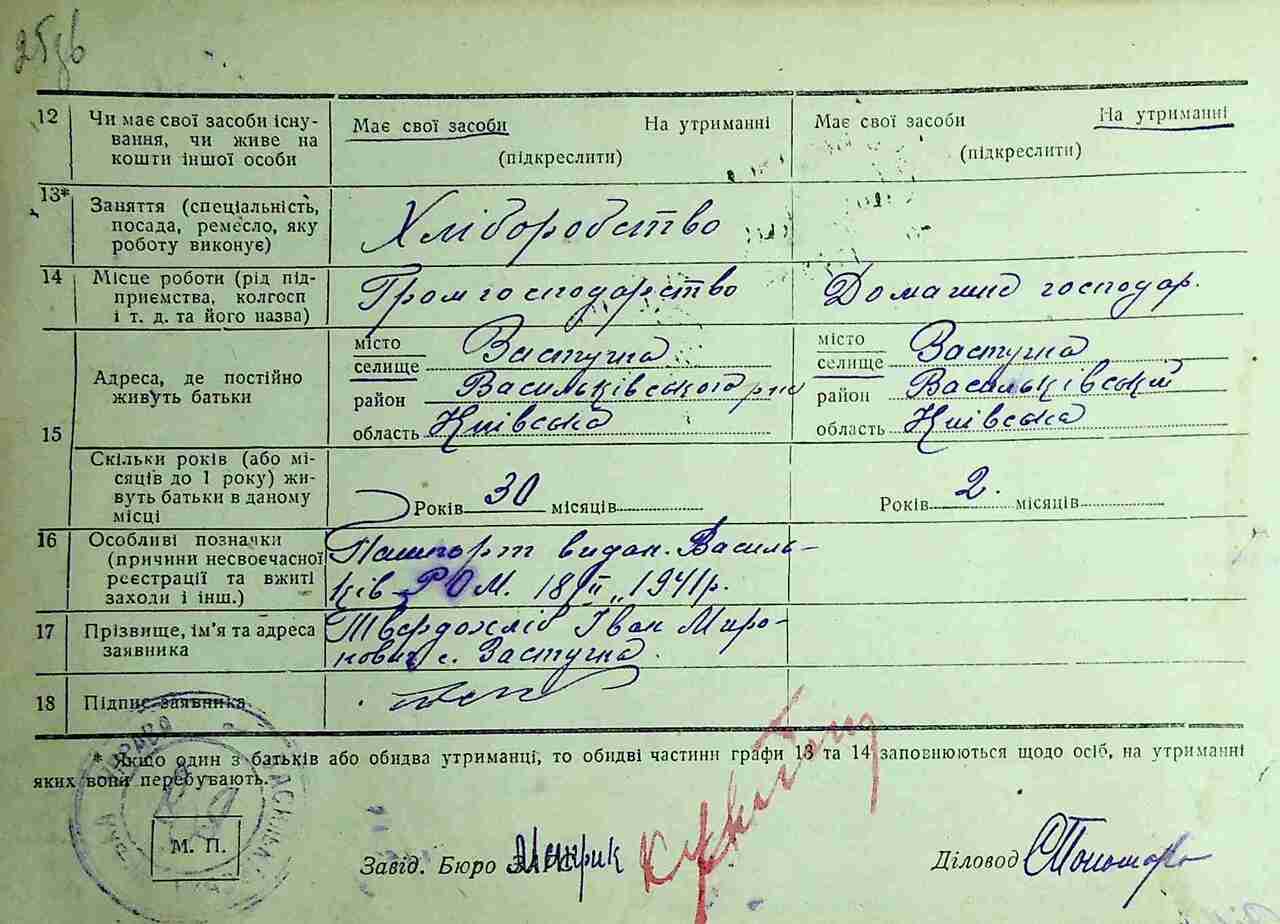 12 Чи має свої засоби існу-
вання, чи живе на
кошти іншої особи
Має свої засоби На утриманні
(підкреслити)
Має свої засоби На утриманні
(підкреслити)
13* Заняття (спеціальність,
посада, ремесло, яку
роботу виконує)
Хліборобство
14 Місце роботи (рід під-
приємства, колгосп
і т. д. та його назва)
Громгосподарство
Домашнє господар.
15
Адреса, де постійно
живуть батьки
місто
селище Застугна
район Васильківського р-ну
область Київська
місто
селище Застугна
район Васильківський
область Київська
Скільки років (або мі-
сяців до 1 року) жи-
вуть батьки в даному
місці
Років 30 місяців
Років 2. місяців
16 Особливі позначки
(причини несвоєчасної
реєстрації та вжиті
заходи і інш.)
Пашпорт видан. Василь-
ків РОМ. 18/II 1941р.
17 Прізвище, ім'я та адреса
заявника
Твердохліб Іван Миро-
нович с. Застугна.
18 Підпис заявника
* Якщо один з батьків або обидва утриманці, то обидві частини графи 13 та 14 заповнюються щодо осіб, на утриманні
яких вони перебувають.
М. П.
Завід. Бюро ЗАГС
Діловод